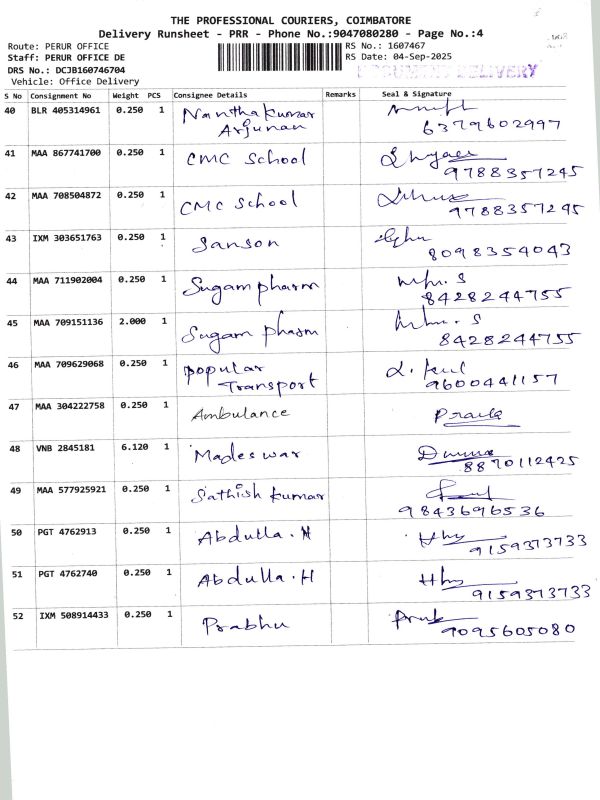 THE PROFESSIONAL COURIERS, COIMBATORE
Delivery Runsheet - PRR - Phone No.:9047080280 - Page No.:4
Route: PERUR OFFICE
RS No.: 1607467
Staff: PERUR OFFICE DE
RS Date: 04-Sep-2025
DRS No.: DCJB160746704
Vehicle: Office Delivery
S No Consignment No Weight PCS Consignee Details Remarks Seal & Signature
40 BLR 405314961 0.250 1 Nanthakumar
Arjunan 6379602997
41 MAA 867741700 0.250 1 CMC School
9788357245
42 MAA 708504872 0.250 1 CMC School
9788357245
43 IXM 303651763 0.250 1 Sanson
8098354043
44 MAA 711902004 0.250 1 Sugam pharm
8428244755
45 MAA 709151136 2.000 1 Sugam pharm
8428244755
46 MAA 709629068 0.250 1 popular
Transport 9600441157
47 MAA 304222758 0.250 1 Ambulance
48 VNB 2845181 6.120 1 Madeswar
8870112425
49 MAA 577925921 0.250 1 Sathish kumar
9843696536
50 PGT 4762913 0.250 1 Abdulla.H
9159373733
51 PGT 4762740 0.250 1 Abdulla.H
9159373733
52 IXM 508914433 0.250 1 Prabhu
9095605080